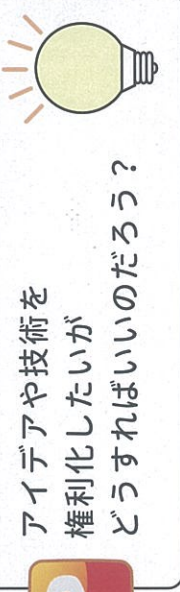 アイデアや技術を
権利化したいが
どうすればいいのだろう？